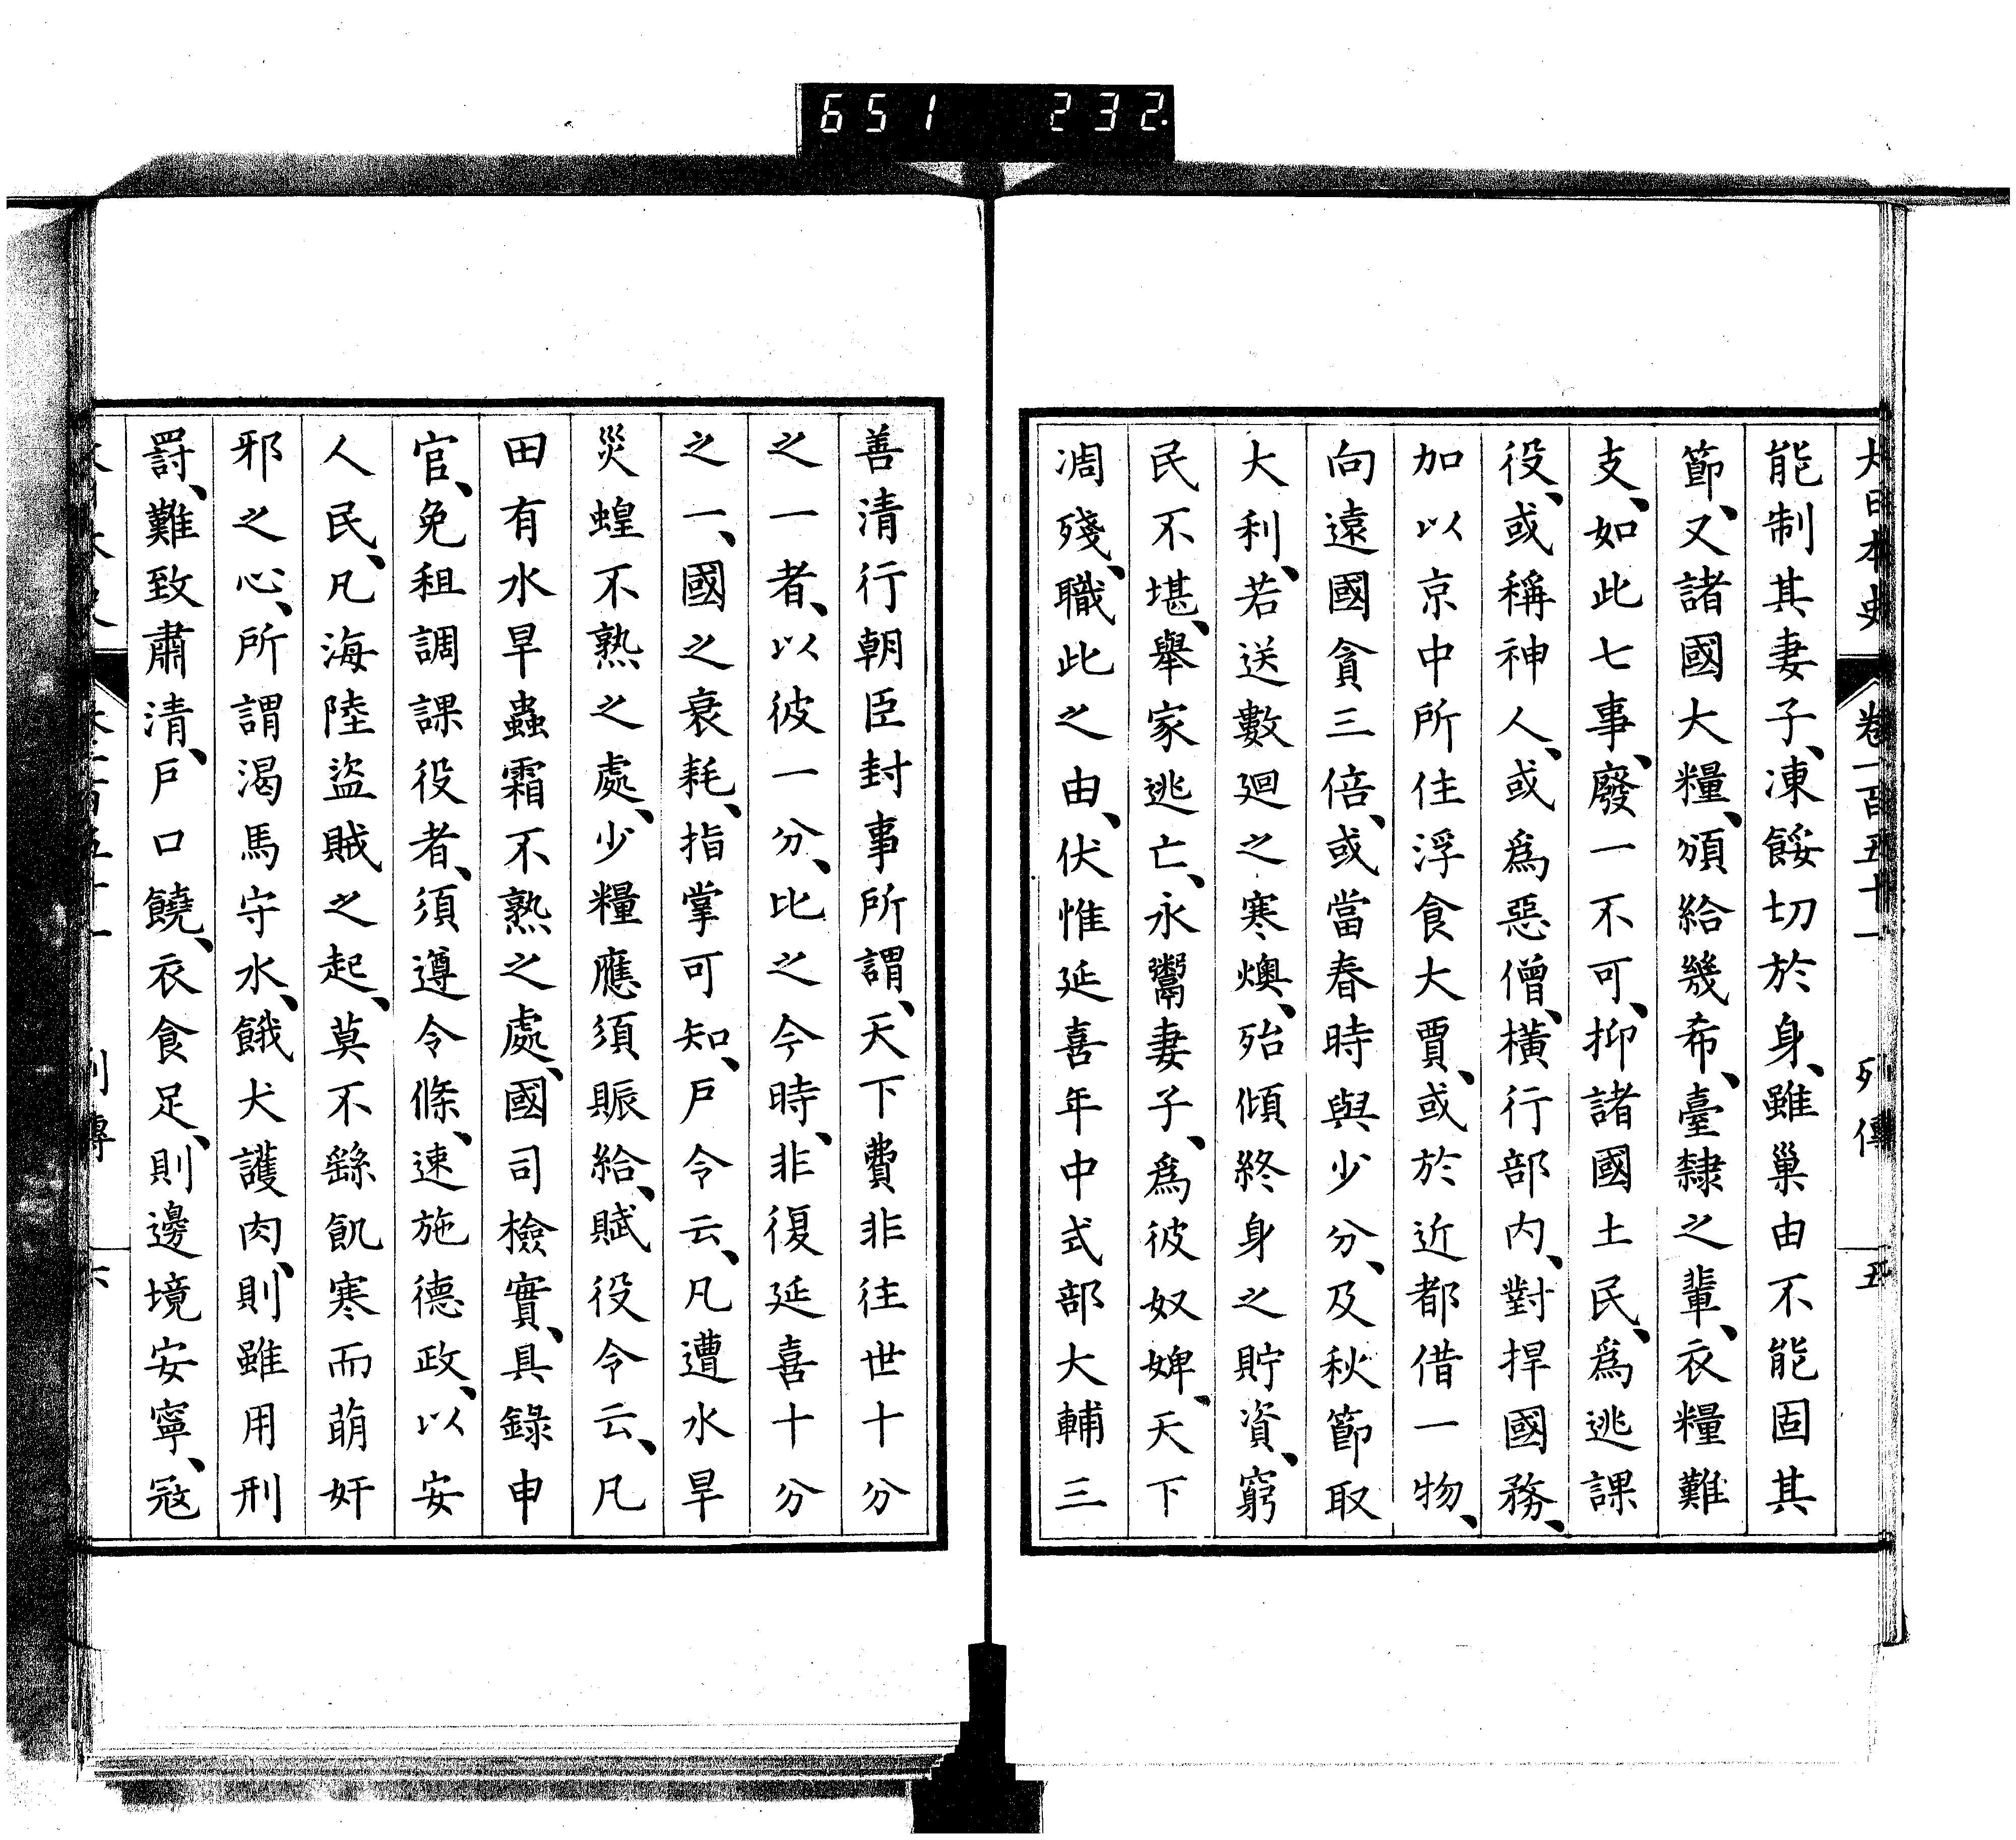 651 232
大日本史 卷一百五十一 列傳 五
能制其妻子、凍餒切於身、雖巢由不能固其
節、又諸國大糧、頒給幾希、臺隸之輩、衣糧難
支、如此七事、廢一不可、抑諸國土民、爲逃課
役、或稱神人、或爲惡僧、橫行部内、對捍國務、
加以京中所住浮食大賈、或於近都借一物、
向遠國貪三倍、或當春時與少分、及秋節取
大利、若送數廻之寒燠、殆傾終身之貯資、窮
民不堪、舉家逃亡、永鬻妻子、爲彼奴婢、天下
凋殘、職此之由、伏惟延喜年中式部大輔三
善清行朝臣封事所謂、天下費非往世十分
之一者、以彼一分、比之今時、非復延喜十分
之一、國之衰耗、指掌可知、戸令云、凡遭水旱
災蝗不熟之處、少糧應須賑給、賦役令云、凡
田有水旱蟲霜不熟之處、國司檢實、具錄申
官、免租調課役者、須遵令條、速施德政、以安
人民、凡海陸盜賊之起、莫不繇飢寒而萌奸
邪之心、所謂渴馬守水、餓犬護肉、則雖用刑
罸、難致肅清、戸口饒、衣食足、則邊境安寧、寇